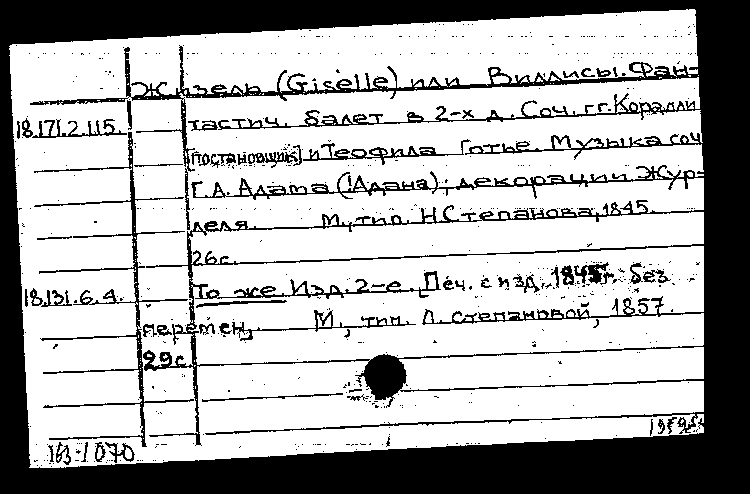 Жизель (Giselle) или Виллисы. Фан-
18.171.2.115. тастич. балет в 2-х д. Соч. г.г. Коралли
[постановщик] и Теофила Готье. Музыка соч
Г. А. Адата (!Адана); декорации Жур-
деля. М., тип. Н Степанова, 1845.
26с.
18.131.6.4. То же. Изд. 2-е. [Печ. с изд. 1845г. без
перемен, М., тип. Л. Степановой, 1857.
29с.
163-1070